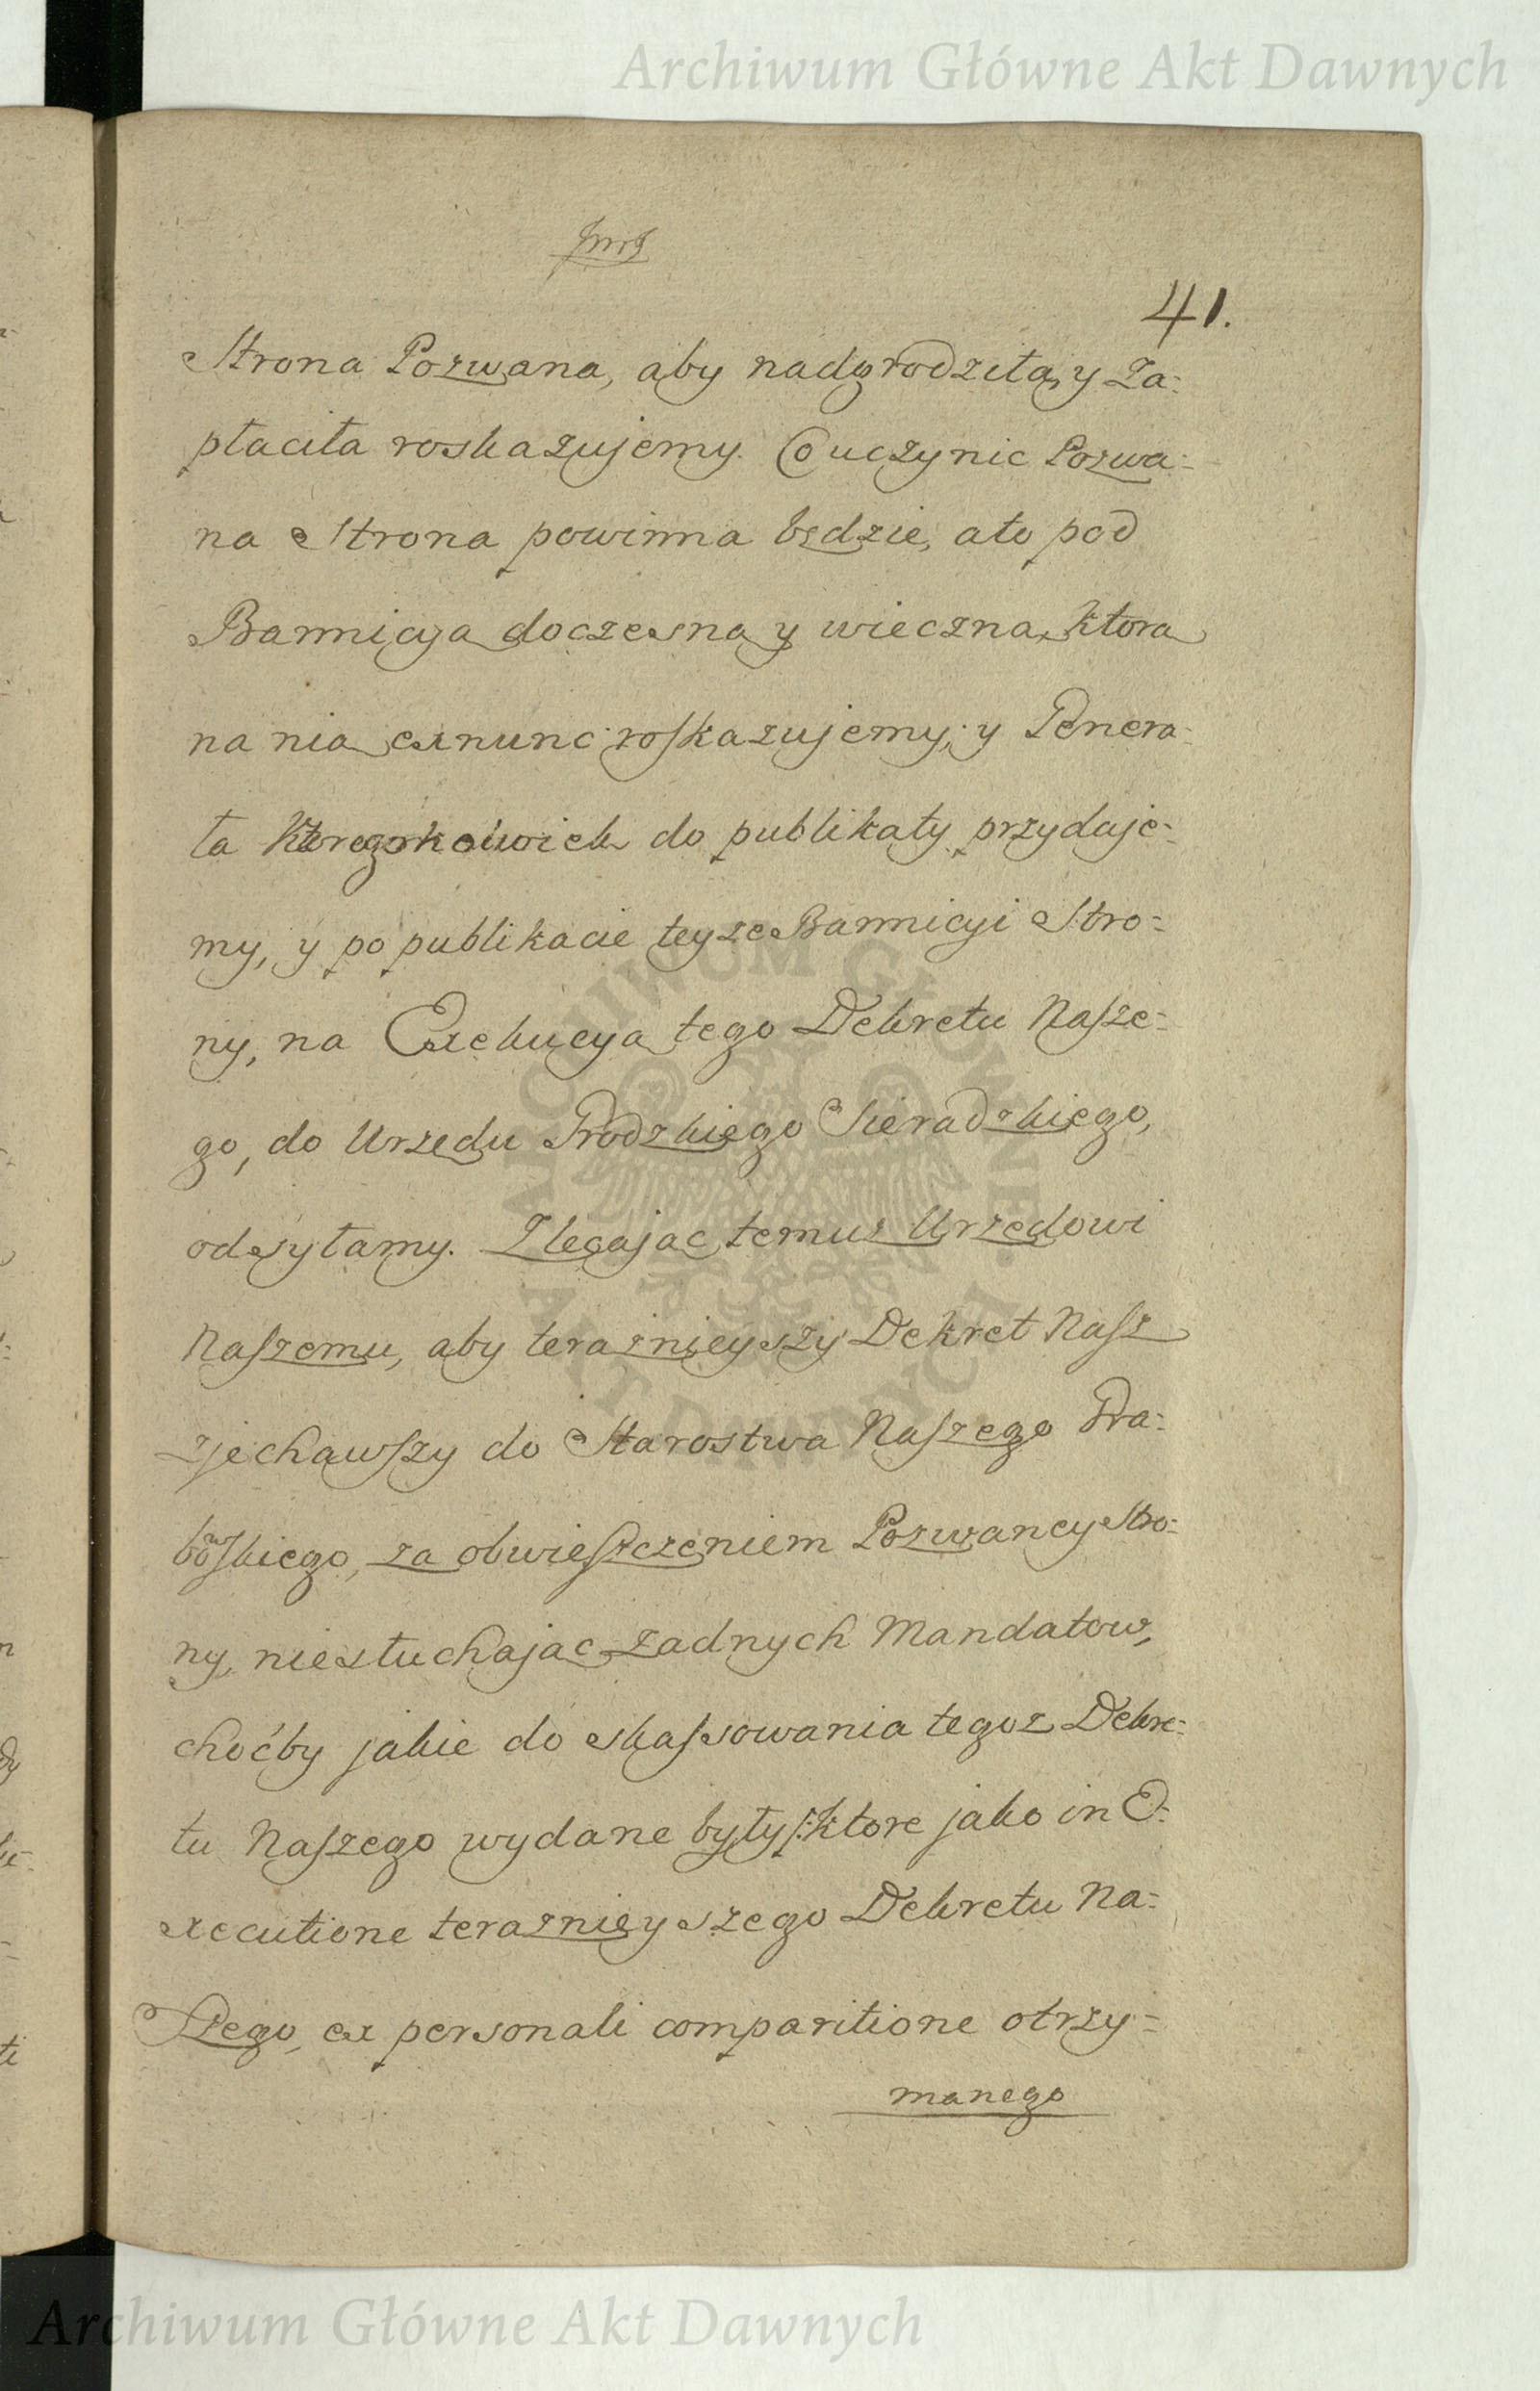 Archiwum Główne Akt Dawnych
41.
Strona Pozwana, aby nadgrodziła, y za-
płaciła roskazujemy. Co uczynic Pozwa-
na Strona powinna będzie, a to pod
Bannicyą doczesną y wieczną, ktorą
na nią ex nunc roskazujemy, y Genera-
ła ktoregokolwiek do publikaty przydaje-
my, y po publikacie teyze Bannicyi Stro-
ny, na Exekucyą tego Dekretu Nasze-
go, do Urzędu Grodzkiego Sieradzkiego,
odsyłamy. Zlecając temuz Urzędowi
Naszemu, aby teraznieyszy Dekret Nasz
zjechawszy do Starostwa Naszego Gra-
bowskiego, za obwieszczeniem Pozwaney Stro-
ny, niesłuchając zadnych Mandatow,
choćby jakie do skassowania tegoz Dekre-
tu Naszego wydane były /: ktore jako in E-
xecutione teraznieyszego Dekretu Na-
szego, ex personali comparitione otrzy-
manego
ARCHIWUM GŁÓWNE AKT DAWNYCH
Archiwum Główne Akt Dawnych